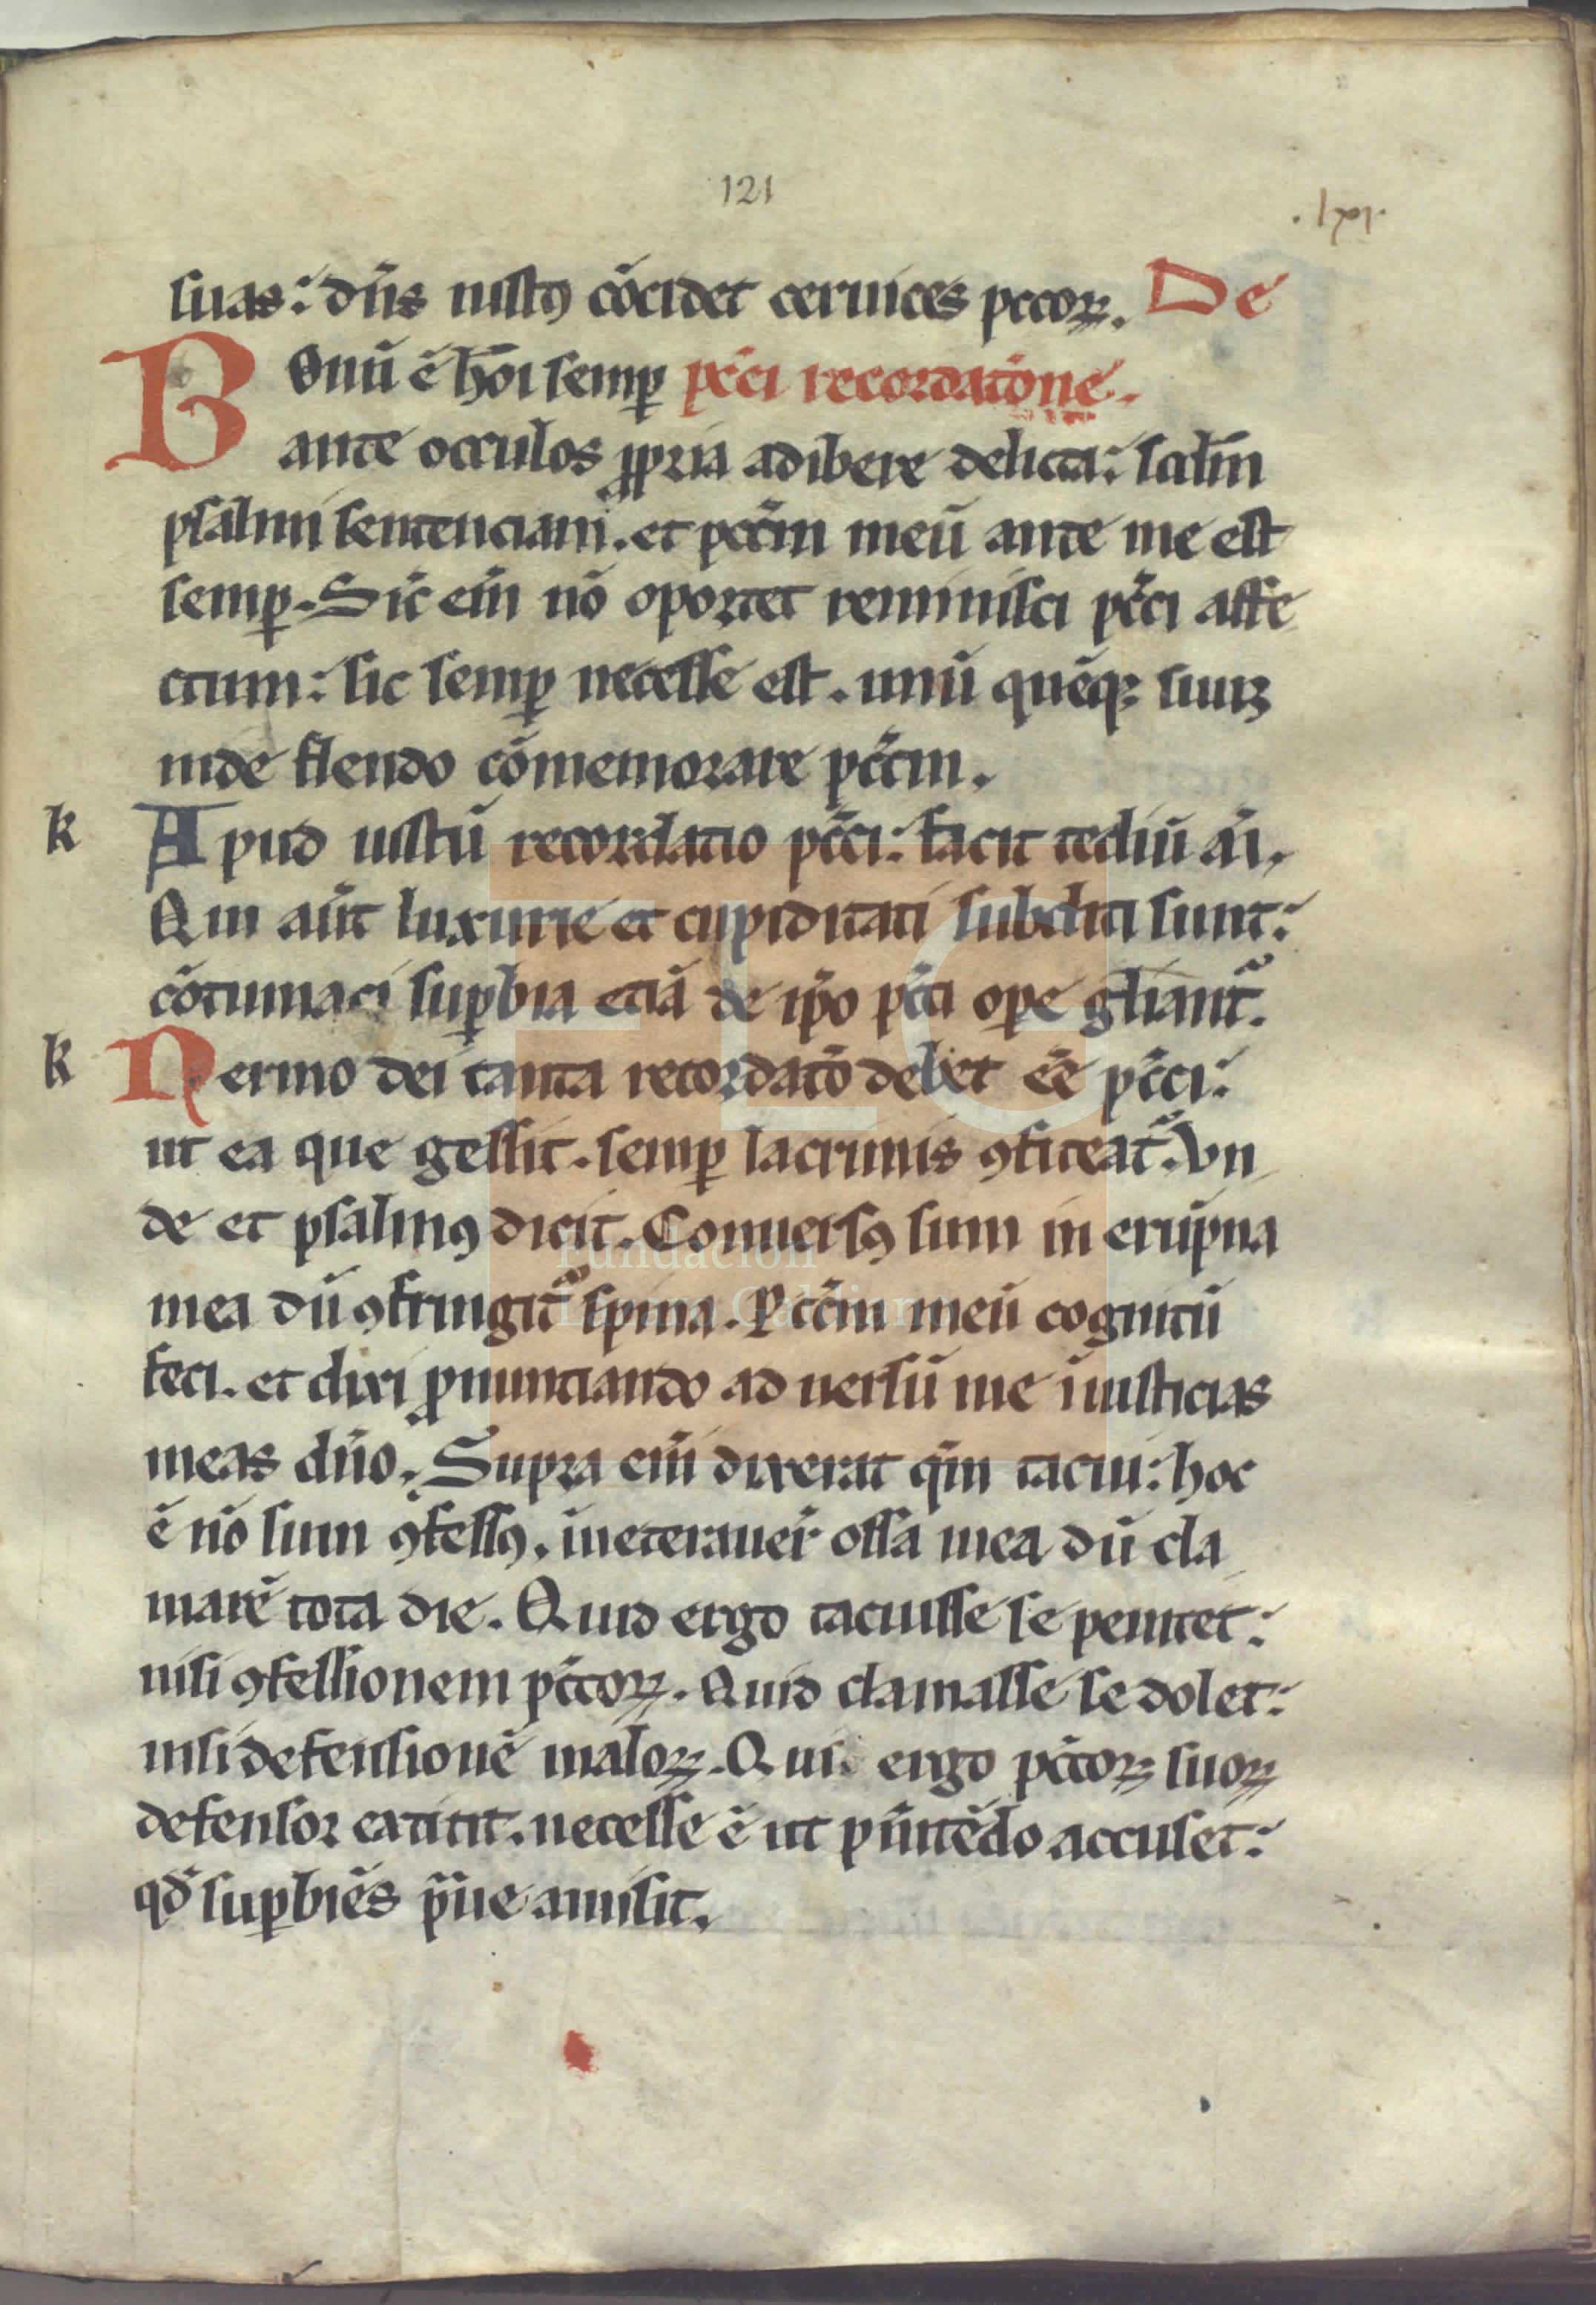 121
.lxxi.
suas: dñs iustꝯ cõcidet ceruices pccoꝝ. De
Bonũ ẽ hõi semꝑ pc̃ci recordatõne.
ante occulos ꝓpria adibere delicta: scd̃m
psalmi sentenciam. et pcc̃m meũ ante me est
semꝑ. Sic̃ eĩ nõ oportet reminisci pc̃ci affe
ctum: sic semꝑ necesse est. unũ quẽqꝫ suuꝫ
inde flendo cõmemorare pcc̃m.
k Apud iustũ recordatio pc̃ci: facit tediũ ãi.
Qui aũt luxurie et cupiditati subditi sunt:
cõtumaci suꝑbia etiã de ip̃o pc̃ti ope gl̃iant᷑.
k Nermo dei tanta recordatõ debet eẽ pc̃ci:
ut ea que gessit. semꝑ lacrimis ꝯfiteat᷑. Vn
de et psalmꝯ dicit. Conuersꝯ sum in erũpna
mea dũ ꝯfringit᷑ spina. Pcc̃m meũ cognitũ
feci. et dixi ꝓnunciando ad uersũ me ĩiusticias
meas dño. Supra eĩ dixerat qm̃ tacui: hoc
ẽ nõ sum ꝯfessꝯ. ĩueterauer̃ ossa mea dũ cla
marẽ tota die. Quid ergo tacuisse se penitet:
nisi ꝯfessionem pc̃coꝝ. Quid clamasse se dolet:
nisi defensionẽ maloꝝ. Qui ergo pc̃coꝝ suoꝝ
defensor extitit. necesse ẽ ut pñitẽdo accuset:
qd̃ suꝑbiẽs p̃ue amisit.
Fundación